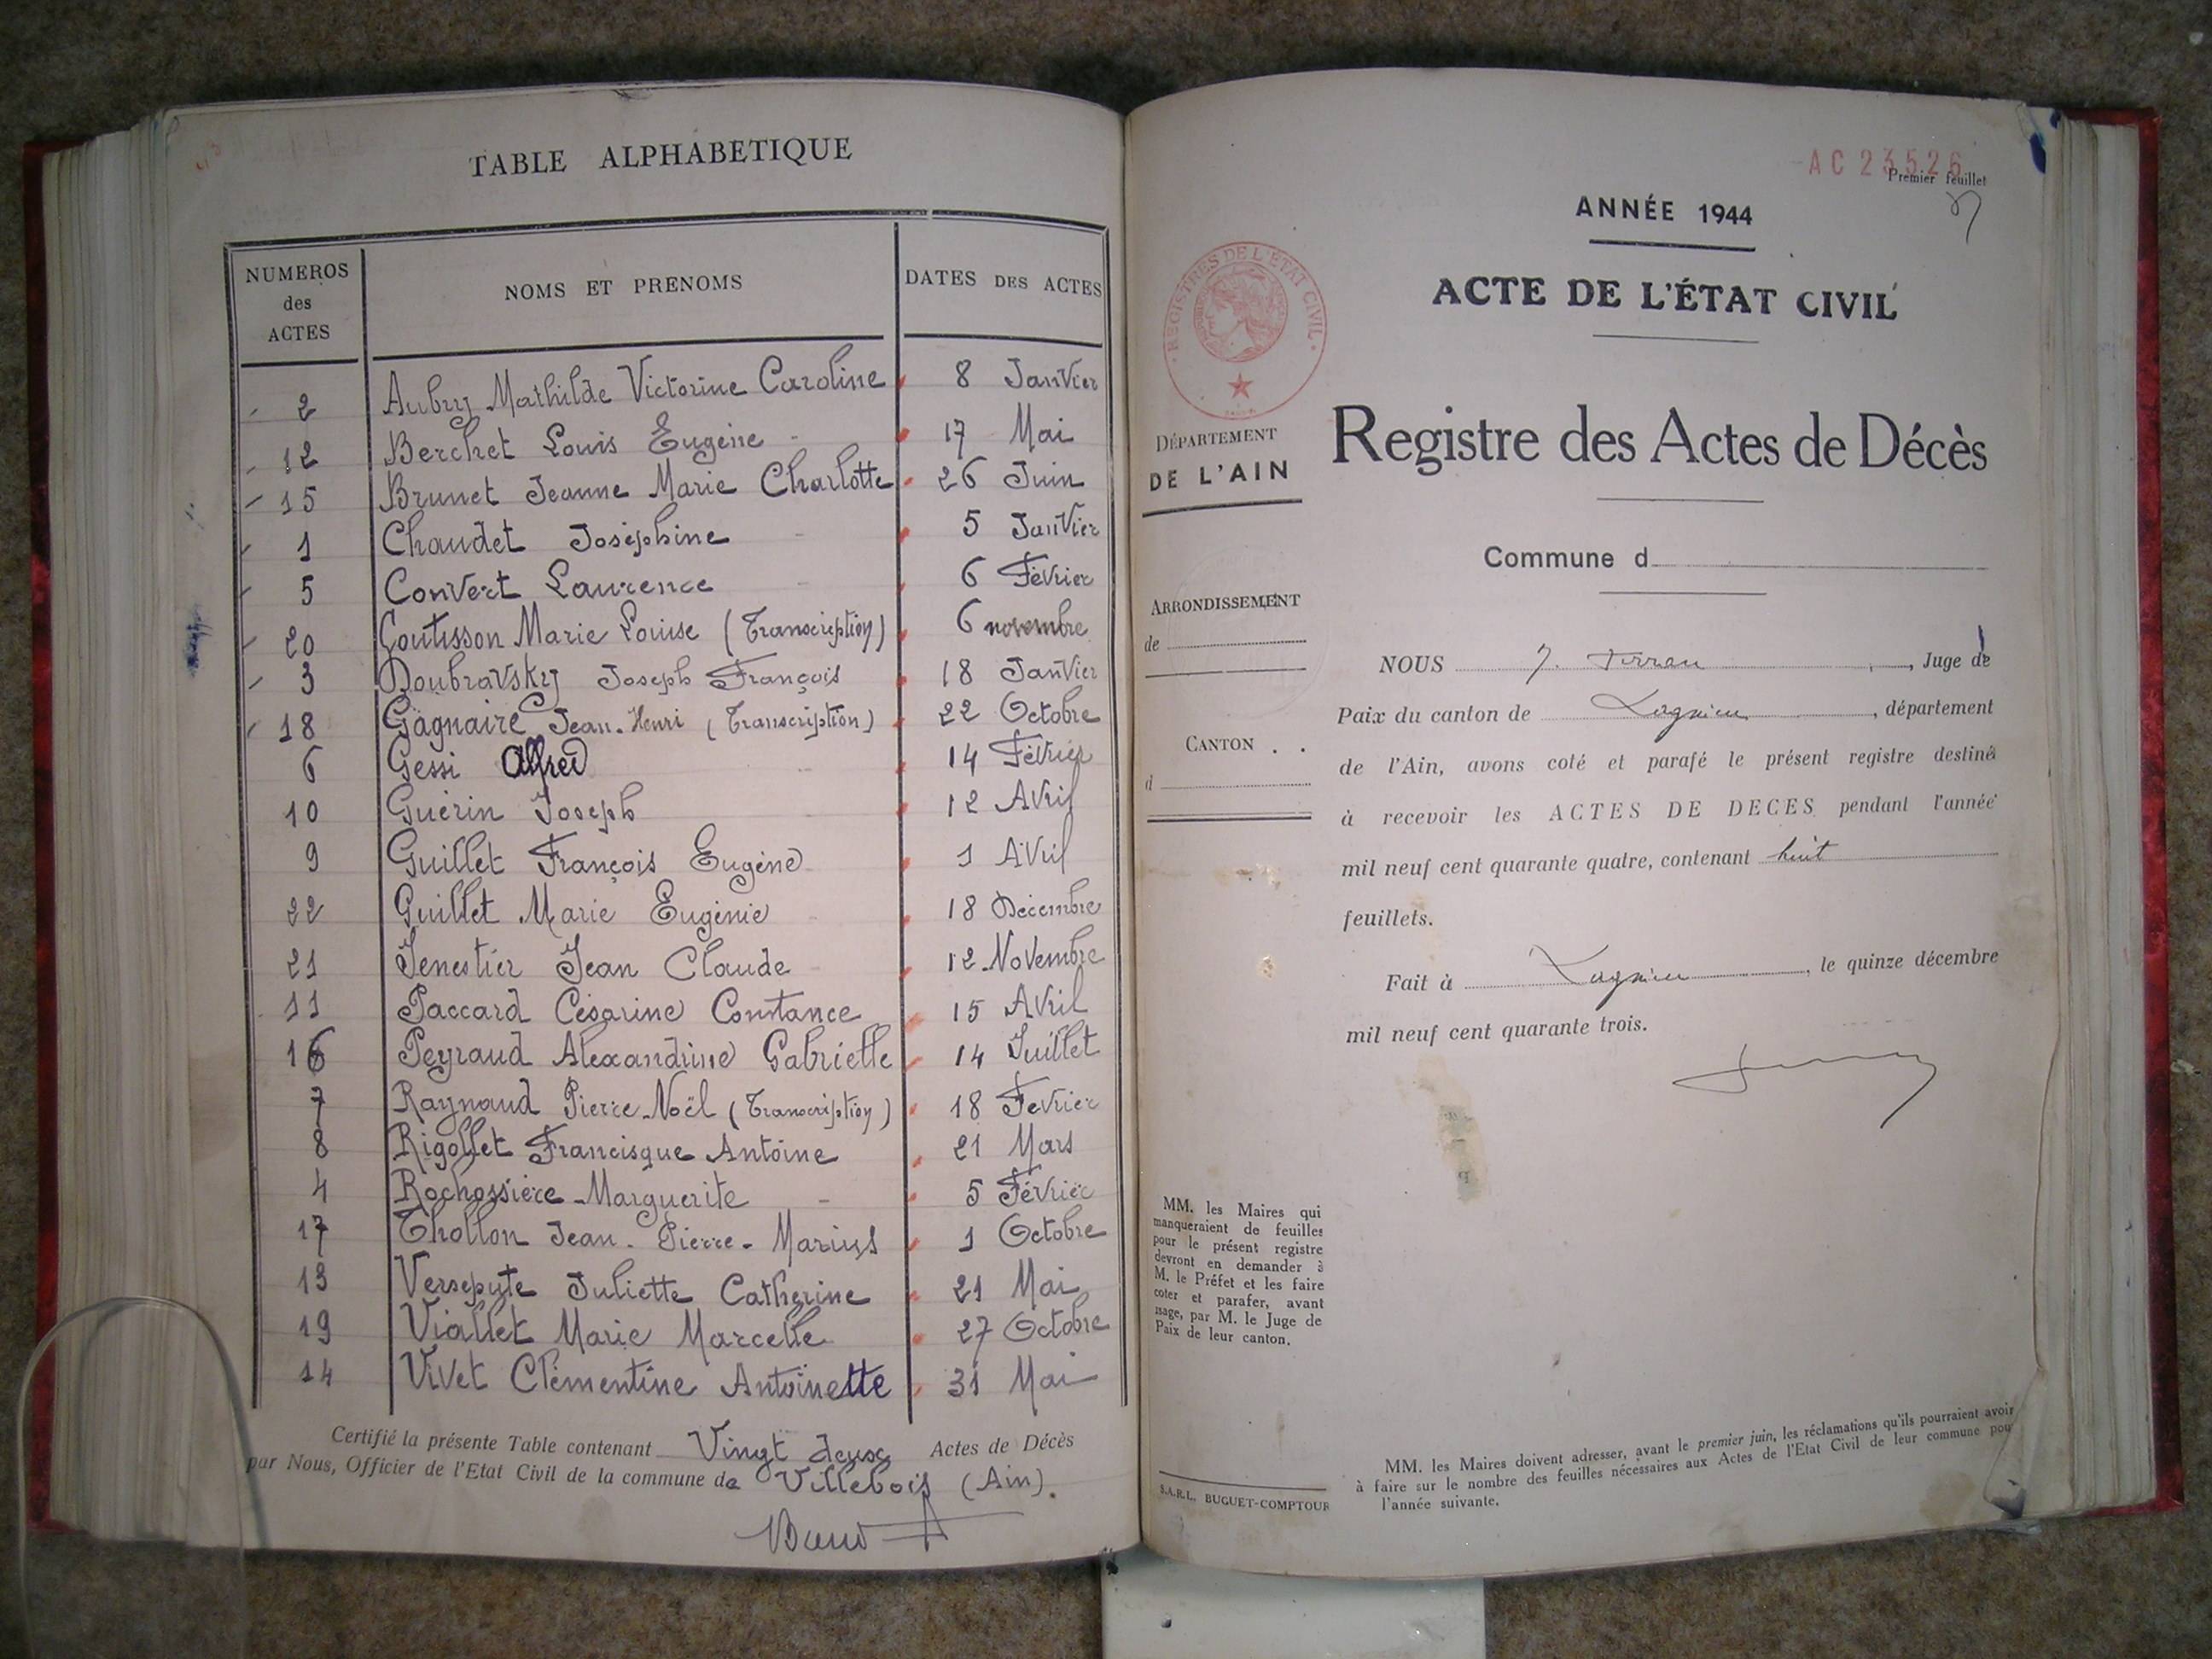 TABLE ALPHABETIQUE
NUMEROS des ACTES NOMS ET PRENOMS DATES DES ACTES
2 Aubry Mathilde Victorine Caroline 8 Janvier
12 Berchet Louis Eugène 17 Mai
15 Brunet Jeanne Marie Charlotte 26 Juin
1 Chaudet Joséphine 5 Janvier
5 Convert Laurence 6 Février
20 Goutisson Marie Louise (Transcription) 6 novembre
3 Doubravsky Joseph François 18 Janvier
18 Gagnaire Jean-Henri (Transcription) 22 Octobre
6 Gessi Alfred 14 Février
10 Guérin Joseph 12 Avril
9 Guillet François Eugène 1 Avril
22 Guillet Marie Eugénie 18 Décembre
21 Jenestier Jean Claude 12 Novembre
11 Paccard Césarine Constance 15 Avril
16 Peyraud Alexandrine Gabrielle 14 Juillet
7 Raynaud Pierre-Noël (Transcription) 18 Fevrier
8 Rigollet Francisque Antoine 21 Mars
4 Rochossière Marguerite 5 Février
17 Thollon Jean-Pierre-Marius 1 Octobre
13 Versepute Juliette Catherine 21 Mai
19 Viallet Marie Marcelle 27 Octobre
14 Vivet Clémentine Antoinette 31 Mai
Certifié la présente Table contenant Vingt deux Actes de Décès
par Nous, Officier de l'Etat Civil de la commune de Villebois (Ain).
AC 23526
Premier feuillet
ANNÉE 1944
ACTE DE L'ÉTAT CIVIL
REGISTRES DE L'ETAT CIVIL
DÉPARTEMENT
DE L'AIN
Registre des Actes de Décès
Commune d
ARRONDISSEMENT
de
CANTON . .
d
NOUS J. , Juge de
Paix du canton de Lagnieu , département
de l'Ain, avons coté et parafé le présent registre destiné
à recevoir les ACTES DE DECES pendant l'année
mil neuf cent quarante quatre, contenant huit
feuillets.
Fait à Lagnieu , le quinze décembre
mil neuf cent quarante trois.
MM. les Maires qui
manqueraient de feuilles
pour le présent registre
devront en demander à
M. le Préfet et les faire
coter et parafer, avant
usage, par M. le Juge de
Paix de leur canton.
S.A.R.L. BUGUET-COMPTOUR
MM. les Maires doivent adresser, avant le premier juin, les réclamations qu'ils pourraient avoir
à faire sur le nombre des feuilles nécessaires aux Actes de l'Etat Civil de leur commune pour
l'année suivante.